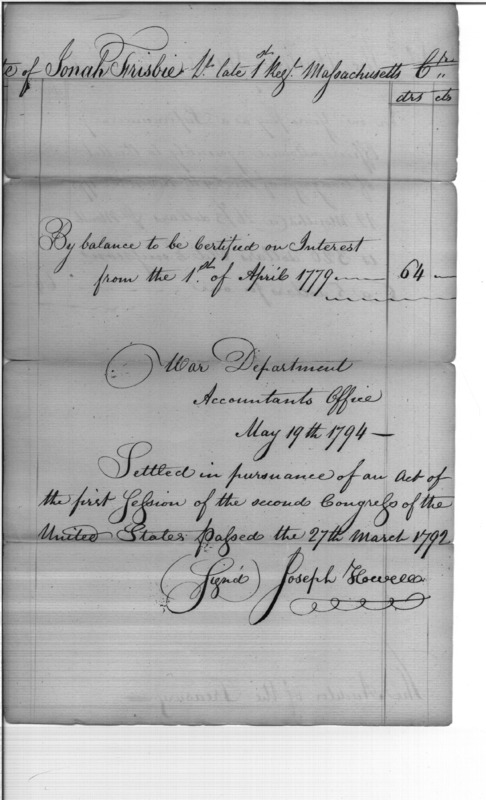 of Jonah Frisbie Lt. late 1st Regt. Massachusetts Cr.
drs cts
By balance to be Certified on Interest
from the 1st. of April 1779 64
War Department
Accountants Office
May 19th 1794 —
Settled in pursuance of an Act of
the first Session of the second Congress of the
United States passed the 27th March 1792
(Sign'd) Joseph Howell
of the Treasury